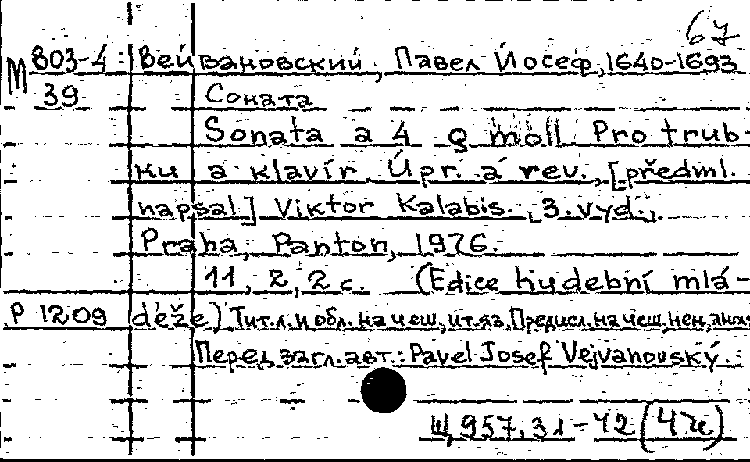 67
М 803-4 Вейвановский, Павел Йосеф, 1640-1693
39 Соната
Sonata a 4 g moll. Pro trub-
ku a klavír. Úpr. a rev., [předml.
napsal] Viktor Kalabis. 3. vyd.
Praha, Panton, 1976.
11, 2, 2 c. (Edice hudební mlá-
Р 1209 deže) Тит. л. и обл. на чеш., ит. яз. Предисл. на чеш., нем., англ.
Перед загл. авт.: Pavel Josef Vejvanovský.
Ш, 957.31-42 (4ч)